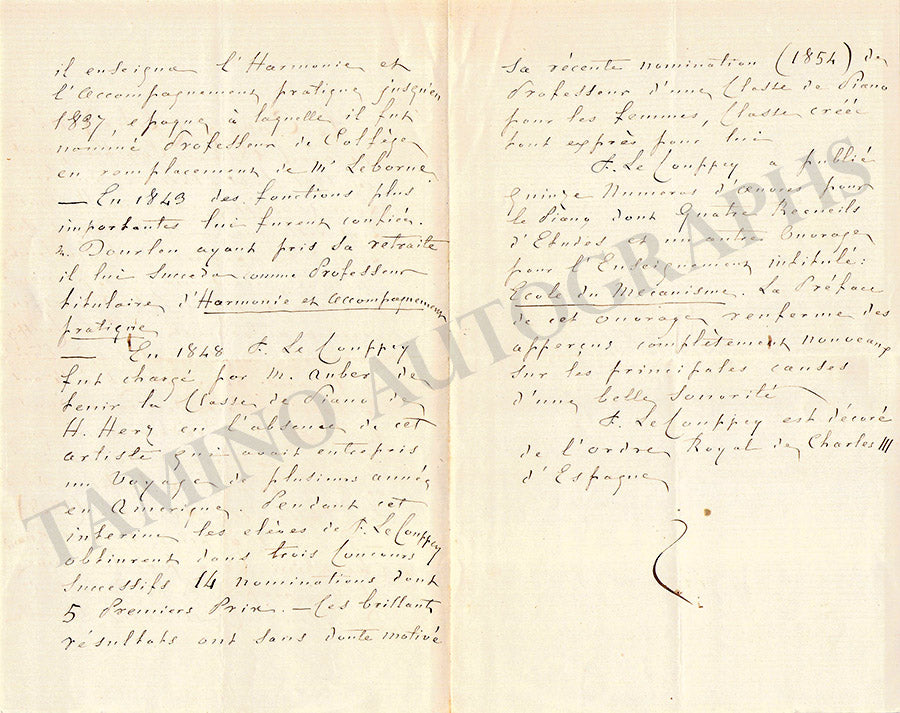 il enseigna l'Harmonie et
l'accompagnement pratique jusqu'en
1837, epoque à laquelle il fut
nommé Professeur de Solfège
en remplacement de Mr Leborne.
— En 1843 des fonctions plus
importantes lui furent confiées.
M. Dourlen ayant pris sa retraite
il lui succeda comme Professeur
titulaire d'Harmonie et accompagnement
pratique
— En 1848 F. Le Couppey
fut chargé par M. Auber de
tenir la Classe de Piano de
H. Herz en l'absence de cet
artiste qui avait entrepris
un voyage de plusieurs années
en Amerique. Pendant cet
interim les elèves de F. Le Couppey
obtinrent dans trois Concours
Successifs 14 nominations dont
5 Premiers Prix. — Ces brillants
résultats ont sans doute motivé
sa récente nomination (1854) de
Professeur d'une Classe de Piano
pour les femmes, Classe créée
tout exprès pour lui
F. Le Couppey a publié
Quinze Numeros d'œuvres pour
le Piano, dont Quatre Recueils
d'Etudes et un autre Ouvrage
pour l'Enseignement intitulé:
Ecole du Mécanisme. La Préface
de cet ouvrage renferme des
apperçus complètement nouveaux
sur les principales causes
d'une belle sonorité
F. Le Couppey est décoré
de l'ordre Royal de Charles III
d'Espagne
TAMINO AUTOGRAPHS